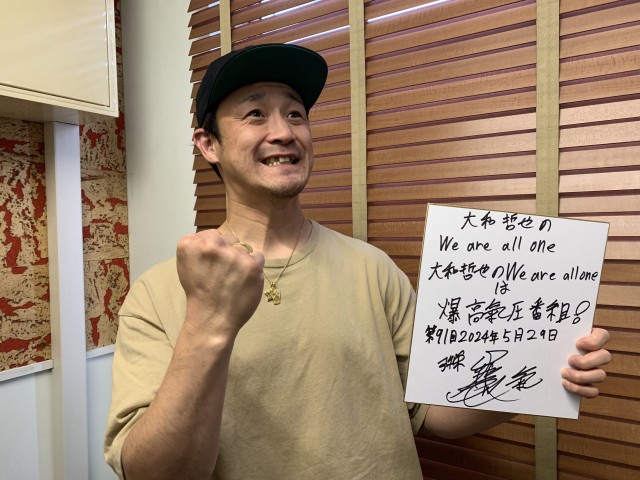 大和哲也の
We are all one
大和哲也のWe are all one
は
爆高氣圧番組!
第91回2024年5月29日